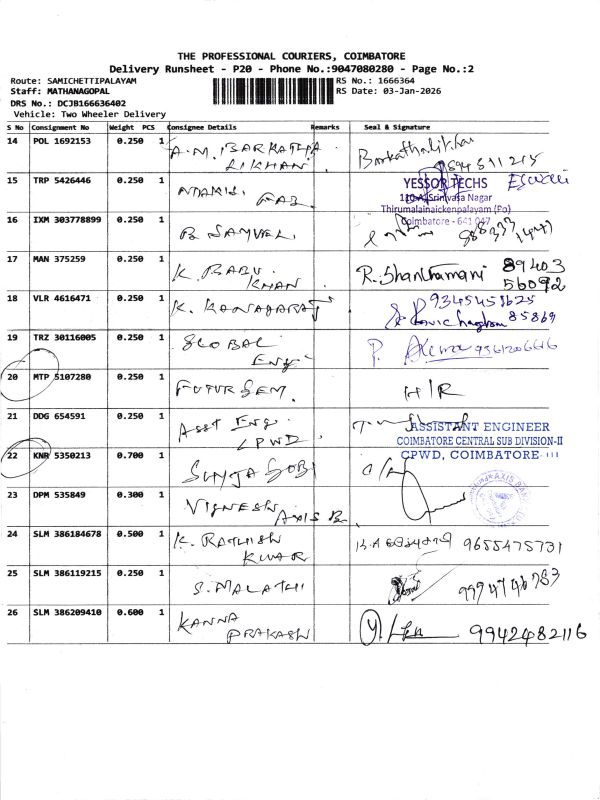 THE PROFESSIONAL COURIERS, COIMBATORE
Delivery Runsheet - P20 - Phone No.:9047080280 - Page No.:2
Route: SAMICHETTIPALAYAM RS No.: 1666364
Staff: MATHANAGOPAL RS Date: 03-Jan-2026
DRS No.: DCJB166636402
Vehicle: Two Wheeler Delivery
S No Consignment No Weight PCS Consignee Details Remarks Seal & Signature
14 POL 1692153 0.250 1 A.M. BARKATHA
LIKHAN Barkathalikhan
15 TRP 5426446 0.250 1
FAB YESSOR TECHS
110-A, Srinivasa Nagar
Thirumalainaickenpalayam (Po)
Coimbatore - 641 047
16 IXM 303778899 0.250 1 B. SAMVEL
17 MAN 375259 0.250 1 K. BABU
KHAN R. Shanthamani 89403
56092
18 VLR 4616471 0.250 1 K. KANAGARAJ 9345458625
85869
19 TRZ 30116005 0.250 1 GLOBAL
Eng P.
20 MTP 5107280 0.250 1 FUTURGEM H/R
21 DDG 654591 0.250 1 ASST Eng
CPWD ASSISTANT ENGINEER
COIMBATORE CENTRAL SUB DIVISION-II
CPWD, COIMBATORE
22 KNR 5350213 0.700 1 SUNJA GOBI
23 DPM 535849 0.300 1 VIGNESH
AXIS B AXIS BANK
24 SLM 386184678 0.500 1 K. RATHISH
KUMAR 9655475731
25 SLM 386119215 0.250 1 S. MALATHI 9994746783
26 SLM 386209410 0.600 1 KANNA
PRAKASH 9942482116